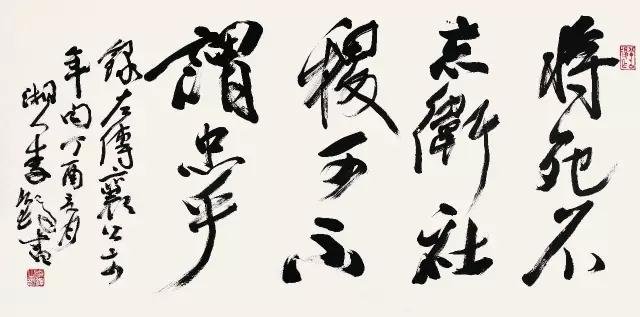 將死不
忘衛社
稷可不
謂忠乎
錄左傳襄公十四
年句丁酉月
湘人李鐸書